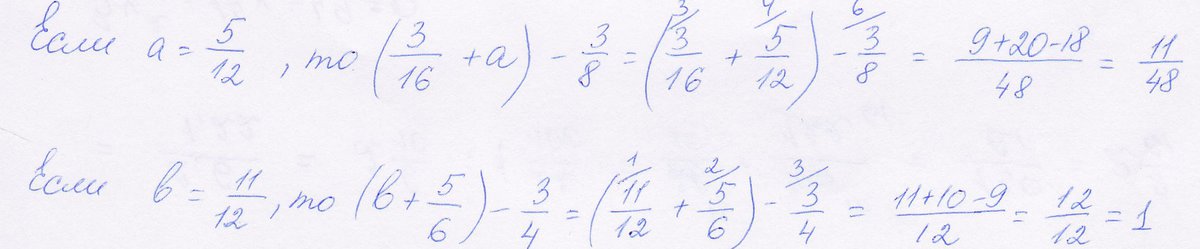 Если a = 5/12, то (3/16 + a) - 3/8 = (3/ 3/16 + 4/ 5/12) - 6/ 3/8 = (9+20-18)/48 = 11/48
Если b = 11/12, то (b + 5/6) - 3/4 = (1/ 11/12 + 2/ 5/6) - 3/ 3/4 = (11+10-9)/12 = 12/12 = 1